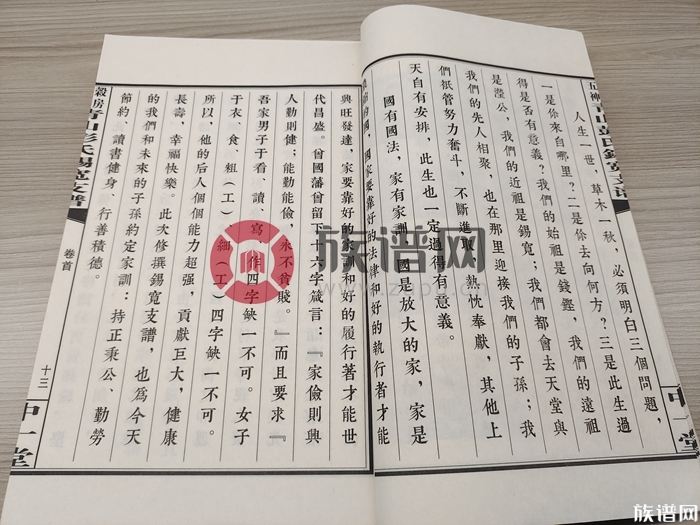 人生一世，草木一秋，必須明白三個問題，
一是你來自哪里？二是你去向何方？三是此生過
得是否有意義？我們的始祖是錢鏗，我們的遠祖
是瀅公，我們的近祖是錫寬；我們都會去天堂與
我們的先人相聚，也在那里迎接我們的子孫；我
們祇管努力奮斗，不斷進取，熱忱奉獻，其他上
天自有安排，此生也一定過得有意義。
國有國法，家有家訓。國是放大的家，家是
國，國家要靠好的法律和好的執行者才能
興旺發達，家要靠好的家訓和好的履行者才能世
代昌盛。曾國藩曾留下十六字箴言：『家儉則興
人勤則健；能勤能儉，永不貧賤。』而且要求『
吾家男子于看、讀、寫、作四字缺一不可。女子
于衣、食、粗（工）、細（工）四字缺一不可。
所以，他的后人個個能力超强，貢獻巨大，健康
長壽，幸福快樂。此次修撰錫寬支譜，也為今天
的我們和未來的子孫約定家訓：持正秉公、勤勞
節約、讀書健身、行善積德。
穀房青山彭氏錫寬支譜
卷首
十三
中一堂
族谱网
族谱网